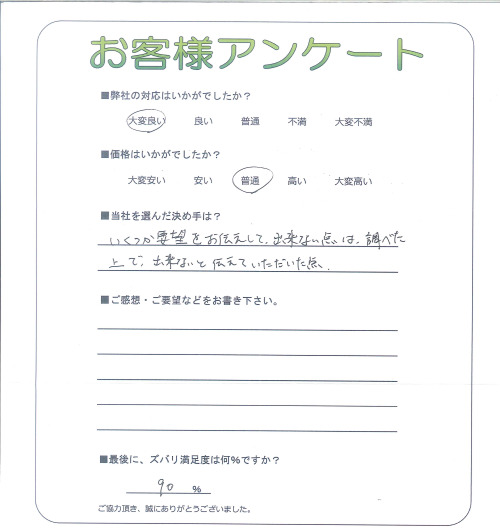 お客様アンケート
■弊社の対応はいかがでしたか？
大変良い 良い 普通 不満 大変不満
■価格はいかがでしたか？
大変安い 安い 普通 高い 大変高い
■当社を選んだ決め手は？
いくつか要望をお伝えして、出来ない点は、調べた
上で、出来ないと伝えていただいた点、
■ご感想・ご要望などをお書き下さい。
■最後に、ズバリ満足度は何%ですか？
90 %
ご協力頂き、誠にありがとうございました。